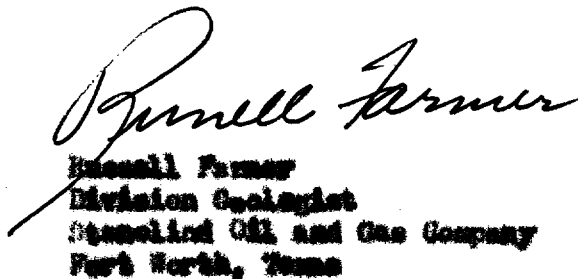 Russell Farmer
Russell Farmer
Division Geologist
Stanolind Oil and Gas Company
Fort Worth, Texas